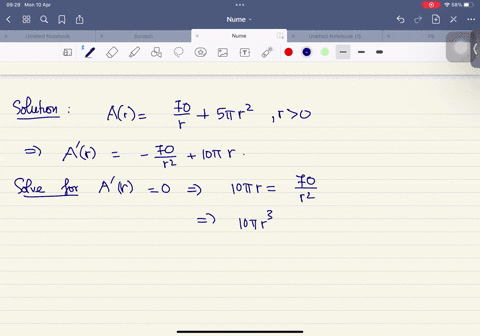 09:28 Mon 10 Apr
58%
Nume
Untitled Notebook
Scratch
Nume
Untitled Notebook (1)
Solution : A(r) = 70/r + 5πr² , r>0
=> A'(r) = - 70/r² + 10π r .
Solve for A'(r) = 0 => 10πr = 70/r²
=> 10πr³